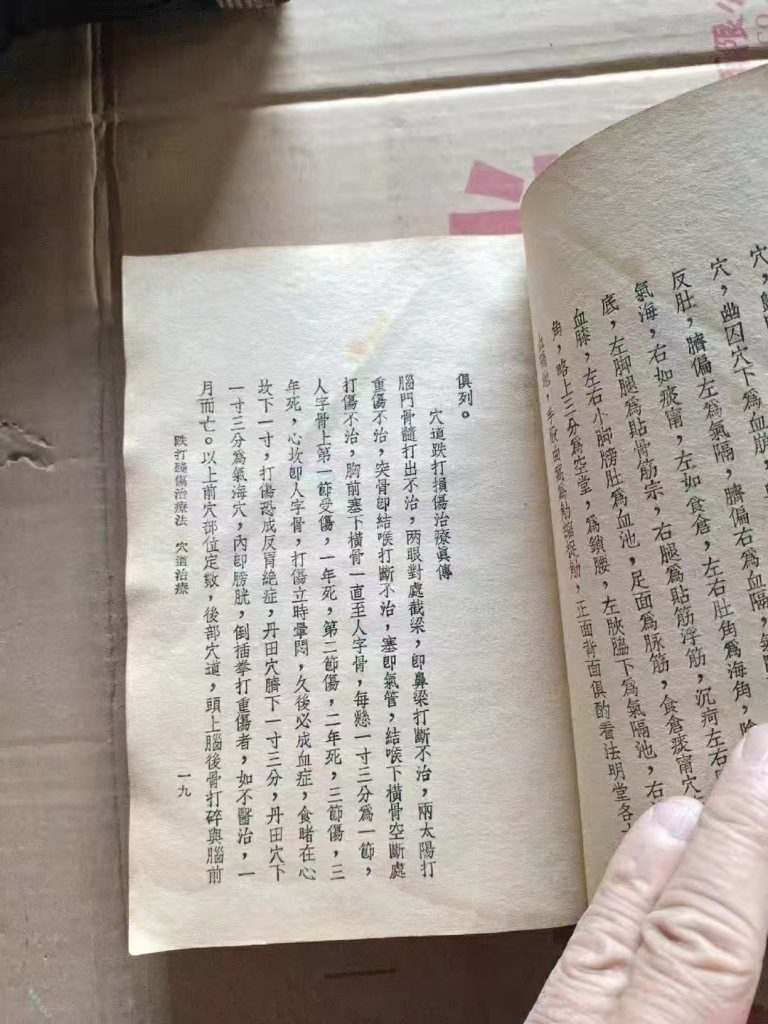 穴，幽囚穴下為血
反肚，臍偏左為氣隔，臍偏右為血隔，氣
氣海，右如痰甯，左如食倉，左右肚角為海角，
底，左脚腿為貼骨筋宗，右腿為貼筋浮筋，沉疴左右
血膝，左右小脚膀肚為血池，足面為脉筋，食倉痰甯穴
角，略上三分為空堂，為鎖腰，左脥脇下為氣隔池，右
正面背面俱酌看法明堂各
俱列。
穴道跌打損傷治療眞傳
腦門骨髓打出不治，两眼對處截梁，卽鼻梁打斷不治，兩太陽打
重傷不治，突骨卽結喉打斷不治，塞卽氣管，結喉下橫骨空斷處
打傷不治，胸前塞下橫骨一直至人字骨，每懸一寸三分為一節，
人字骨上第一節受傷，一年死，第二節傷，二年死，三節傷，三
年死，心坎卽人字骨，打傷立時暈悶，久後必成血症，食睹在心
坎下一寸，打傷恐成反胃絶症，丹田穴臍下一寸三分，丹田穴下
一寸三分為氣海穴，內卽膀胱，倒插拳打重傷者，如不醫治，一
月而亡。以上前穴部位定數，後部穴道，頭上腦後骨打碎與腦前
跌打殘傷治療法　穴道治療
一九